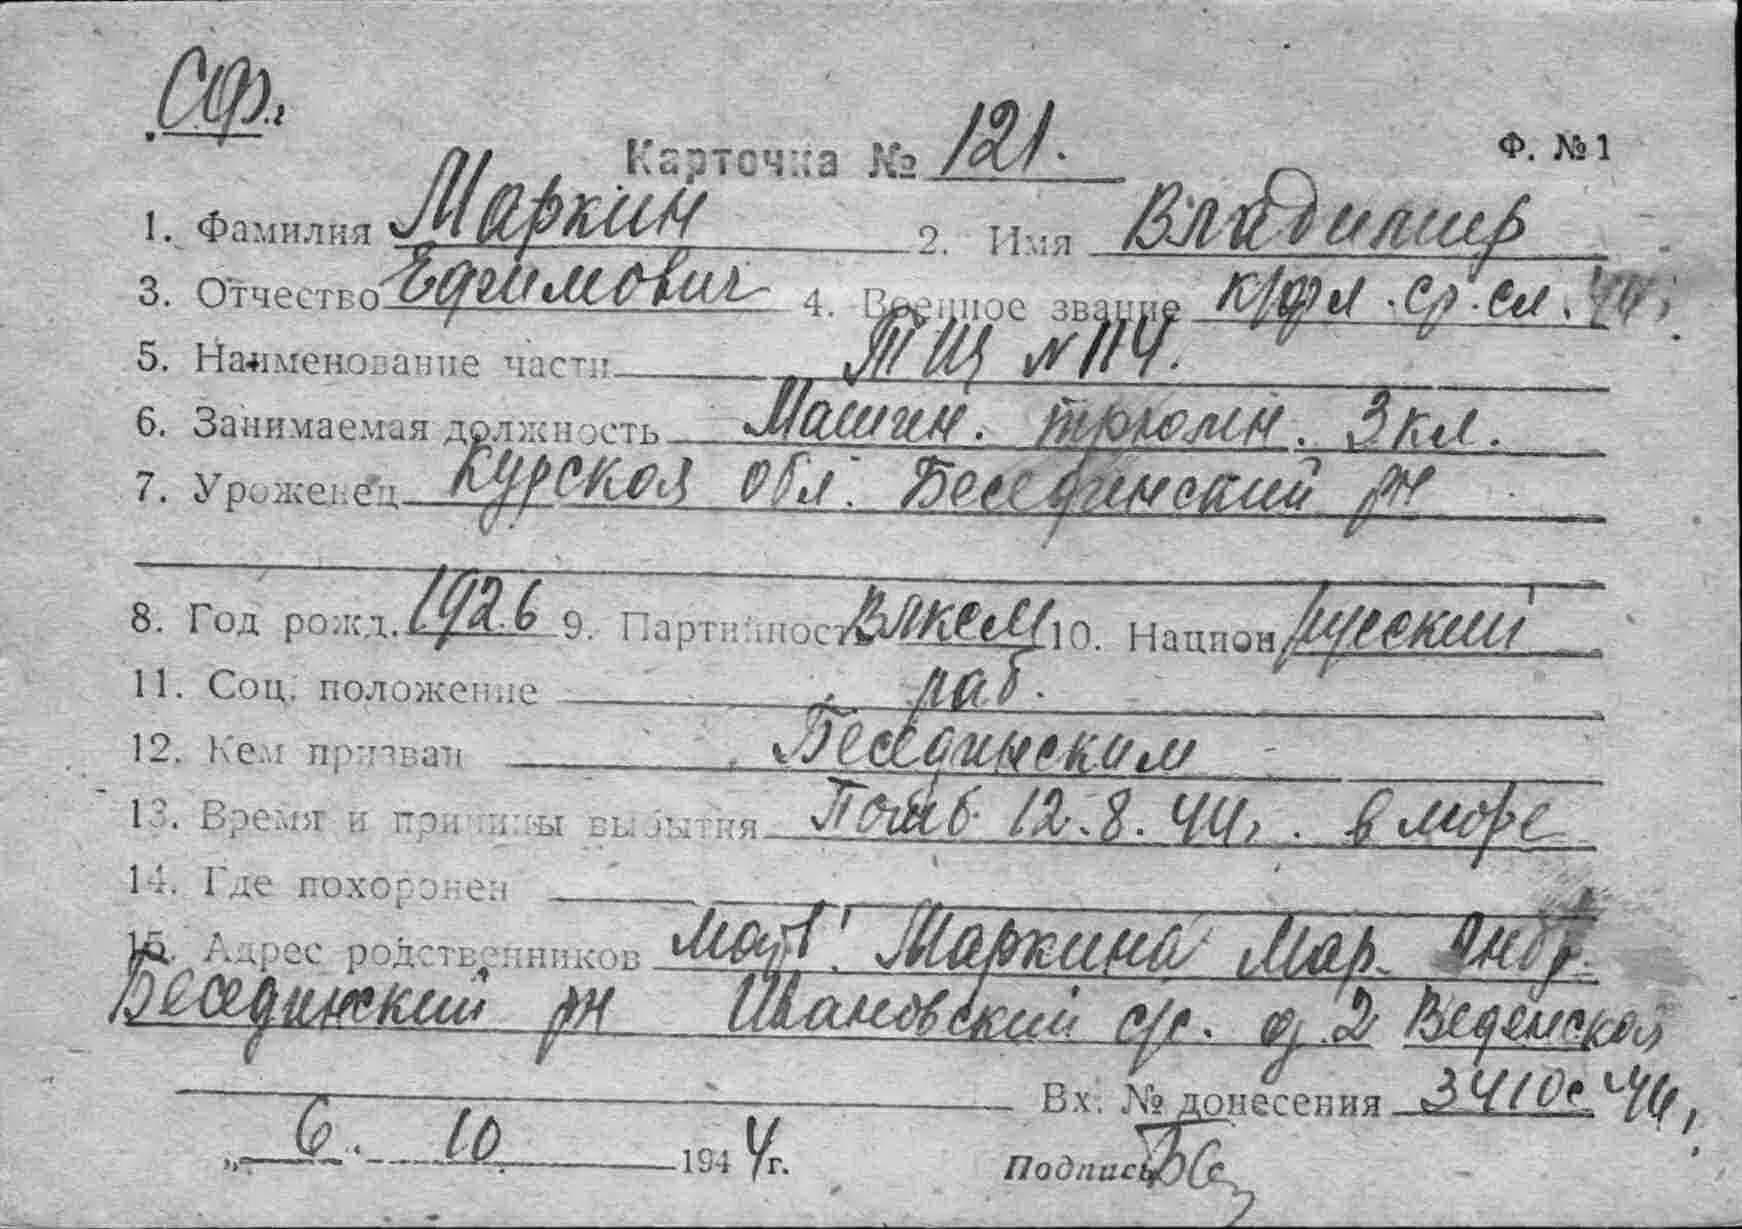 СФ.
Карточка № 121.
Ф. №1
1. Фамилия Маркин 2. Имя Владимир
3. Отчество Ефимович 4. Военное звание к/фл. ср. сл. 44г.
5. Наименование части ТЩ №114.
6. Занимаемая должность Машин. трюмн. 3 кл.
7. Уроженец Курской обл. Беседински​й рн
8. Год рожд. 1926 9. Партийность ВЛКСМ 10. Национ русский
11. Соц. положение раб.
12. Кем призван Беседински​м
13. Время и причины выбытия Погиб 12.8.44г. в море
14. Где похоронен
15. Адрес родственников мать: Маркина Мар. Андр.
Беседински​й рн Ивановский с/с. д. 2 Веденская
Вх. № донесения 3410с 44г.
„6“ 10 1944г. Подпись